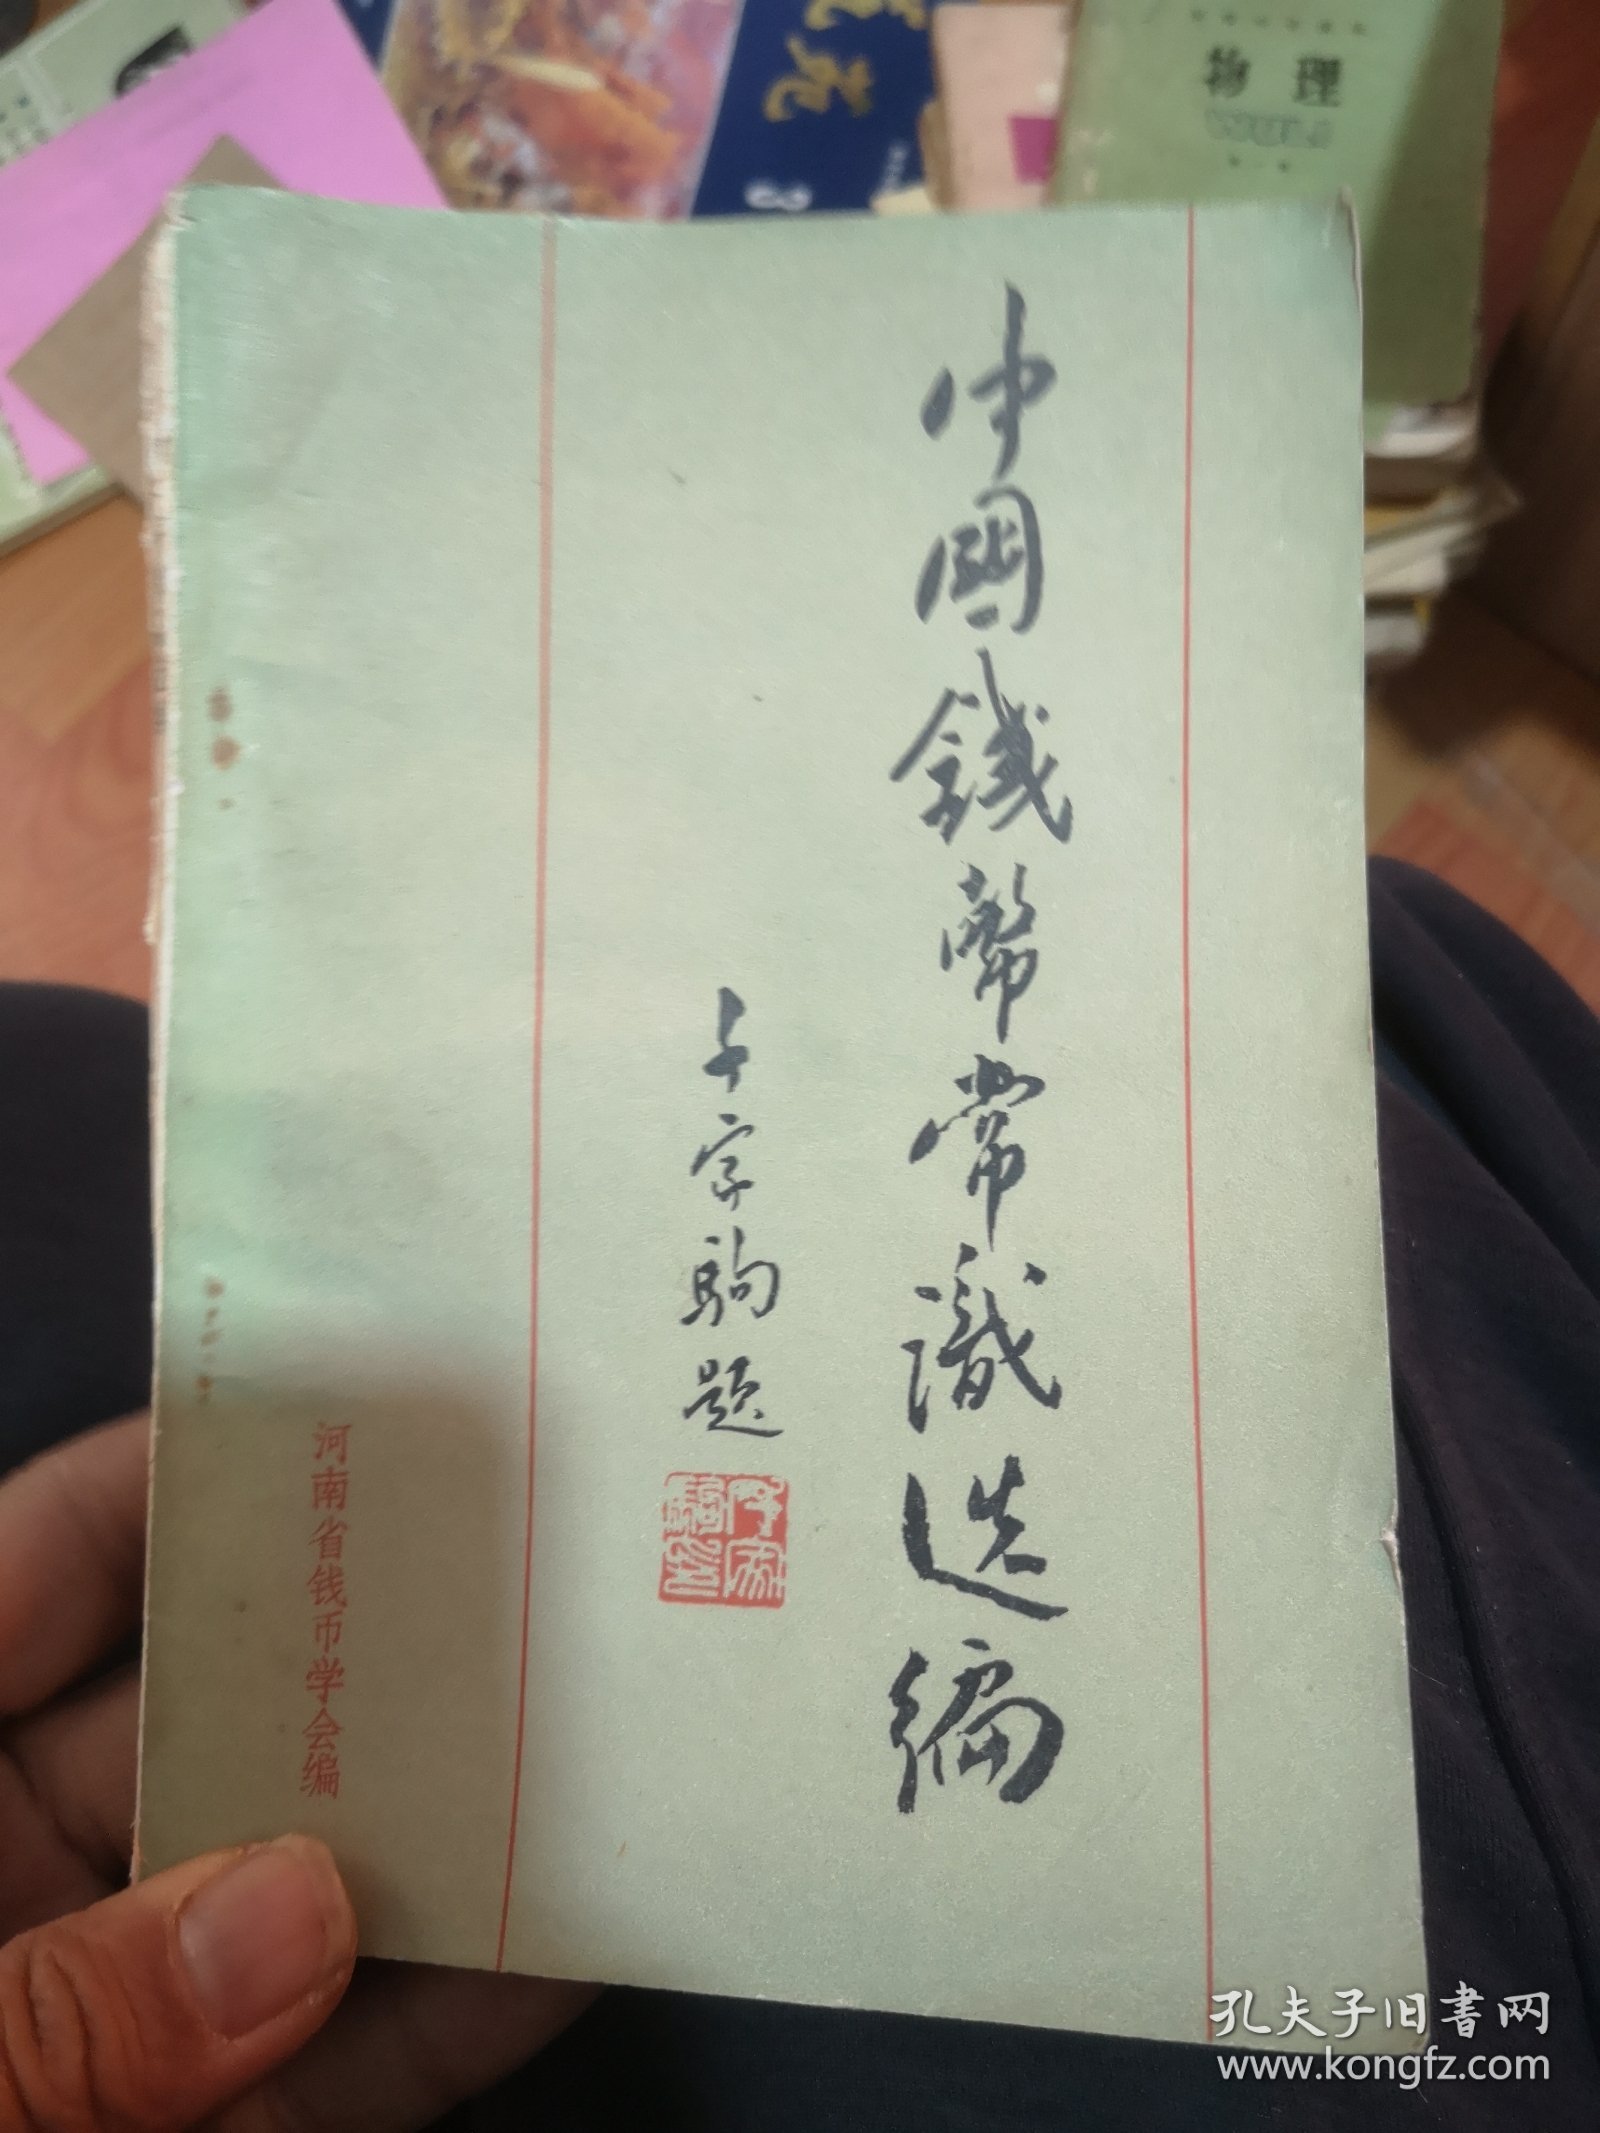 物理
中國錢幣常識选編
千家駒题
河南省钱币学会编
孔夫子旧書网
www.kongfz.com